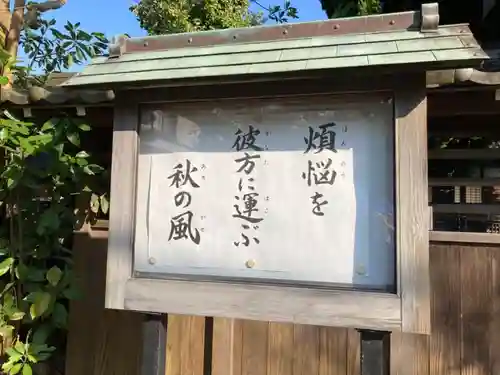 煩悩を
彼方に運ぶ
秋の風